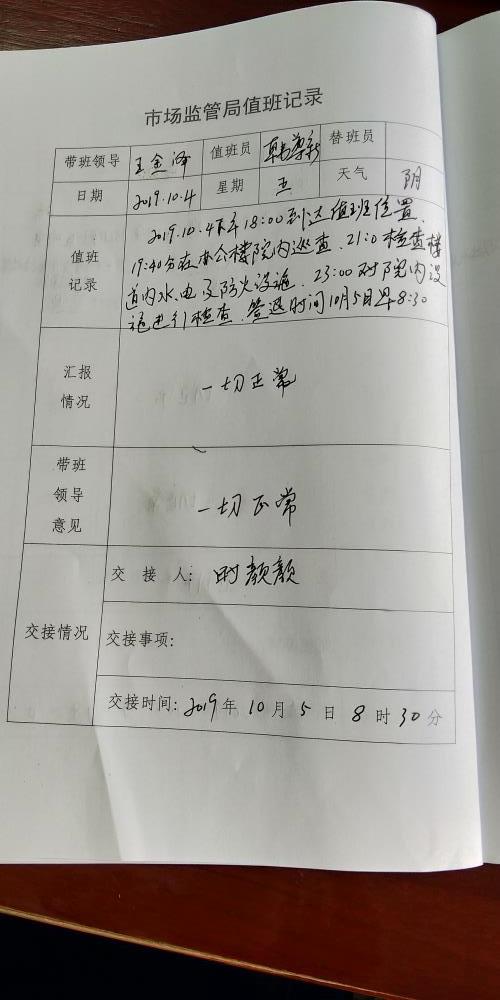 市场监管局值班记录
带班领导 王金泽 值班员 替班员
日期 2019.10.4 星期 五 天气 阴
值班
记录
2019.10.4下午18:00到达值班位置、
19:40分在办公楼院内巡查、21:0检查楼
道内水、电及防火设施、23:00对院内设
施进行检查、签退时间10月5日早8:30
汇报
情况
一切正常
带班
领导
意见
一切正常
交接情况
交接人: 时颜颜
交接事项:
交接时间: 2019年10月5日8时30分